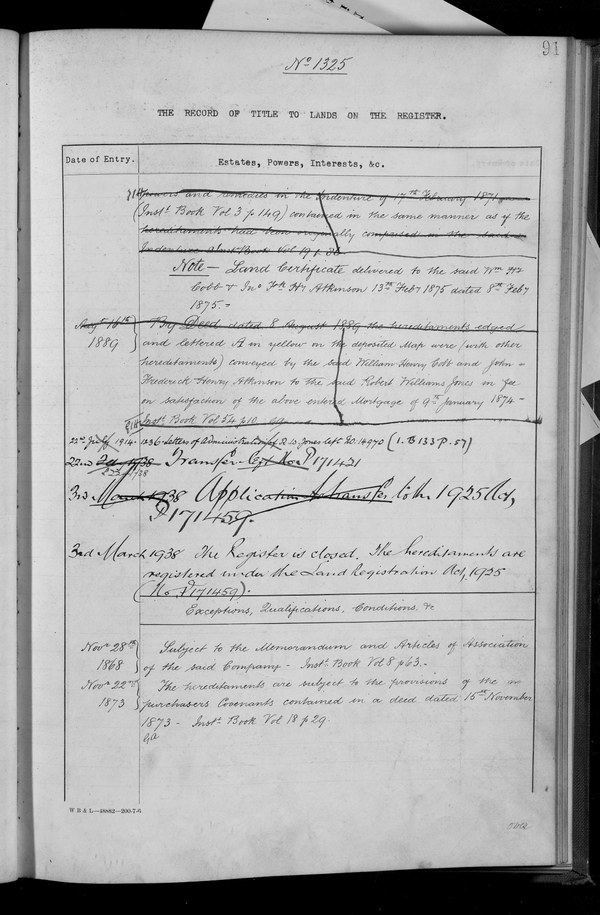 91
No 1325
THE RECORD OF TITLE TO LANDS ON THE REGISTER.
Date of Entry.
Estates, Powers, Interests, &c.
powers and remedies in the Indenture of 17th February 1871
(Instt Book Vol 3 p 149) contained in the same manner as if the
hereditaments had been originally comprised in the said
Indenture Instt Book Vol 19 p. 36
Note — Land Certificate delivered to the said Wm Hy
Cobb & Jno Fk Hy Atkinson 13th Feby 1875 dated 8th Feby
1875. -
Augt 16th By Deed dated 8 August 1889 the hereditaments edged
1889 and lettered A in yellow on the deposited Map were (with other
hereditaments) conveyed by the said William Henry Cobb and John =
Frederick Henry Atkinson to the said Robert Williams Jones in fee
on satisfaction of the above entered Mortgage of 9th January 1874 -
Instt Book Vol 54 p10
22nd July 1914. 1236 Letters of Administration of R. W. Jones (1. B 133 P. 57)
1938 Transfer P171421
3rd March 1938 Application to transfer to the 1925 Act,
P171459.
3rd March 1938 The Register is closed. The hereditaments are
registered under the Land Registration Act, 1925
(No P171459).
Exceptions, Qualifications, Conditions, &c
Novr 28th Subject to the Memorandum and Articles of Association
1868 of the said Company - Instt Book Vol 8 p 63. -
Novr 22nd The hereditaments are subject to the provisions of the
1873 purchasers Covenants contained in a deed dated 15th November
1873 - Instt Book Vol 18 p 29.
W B & L—48882—200-7-6